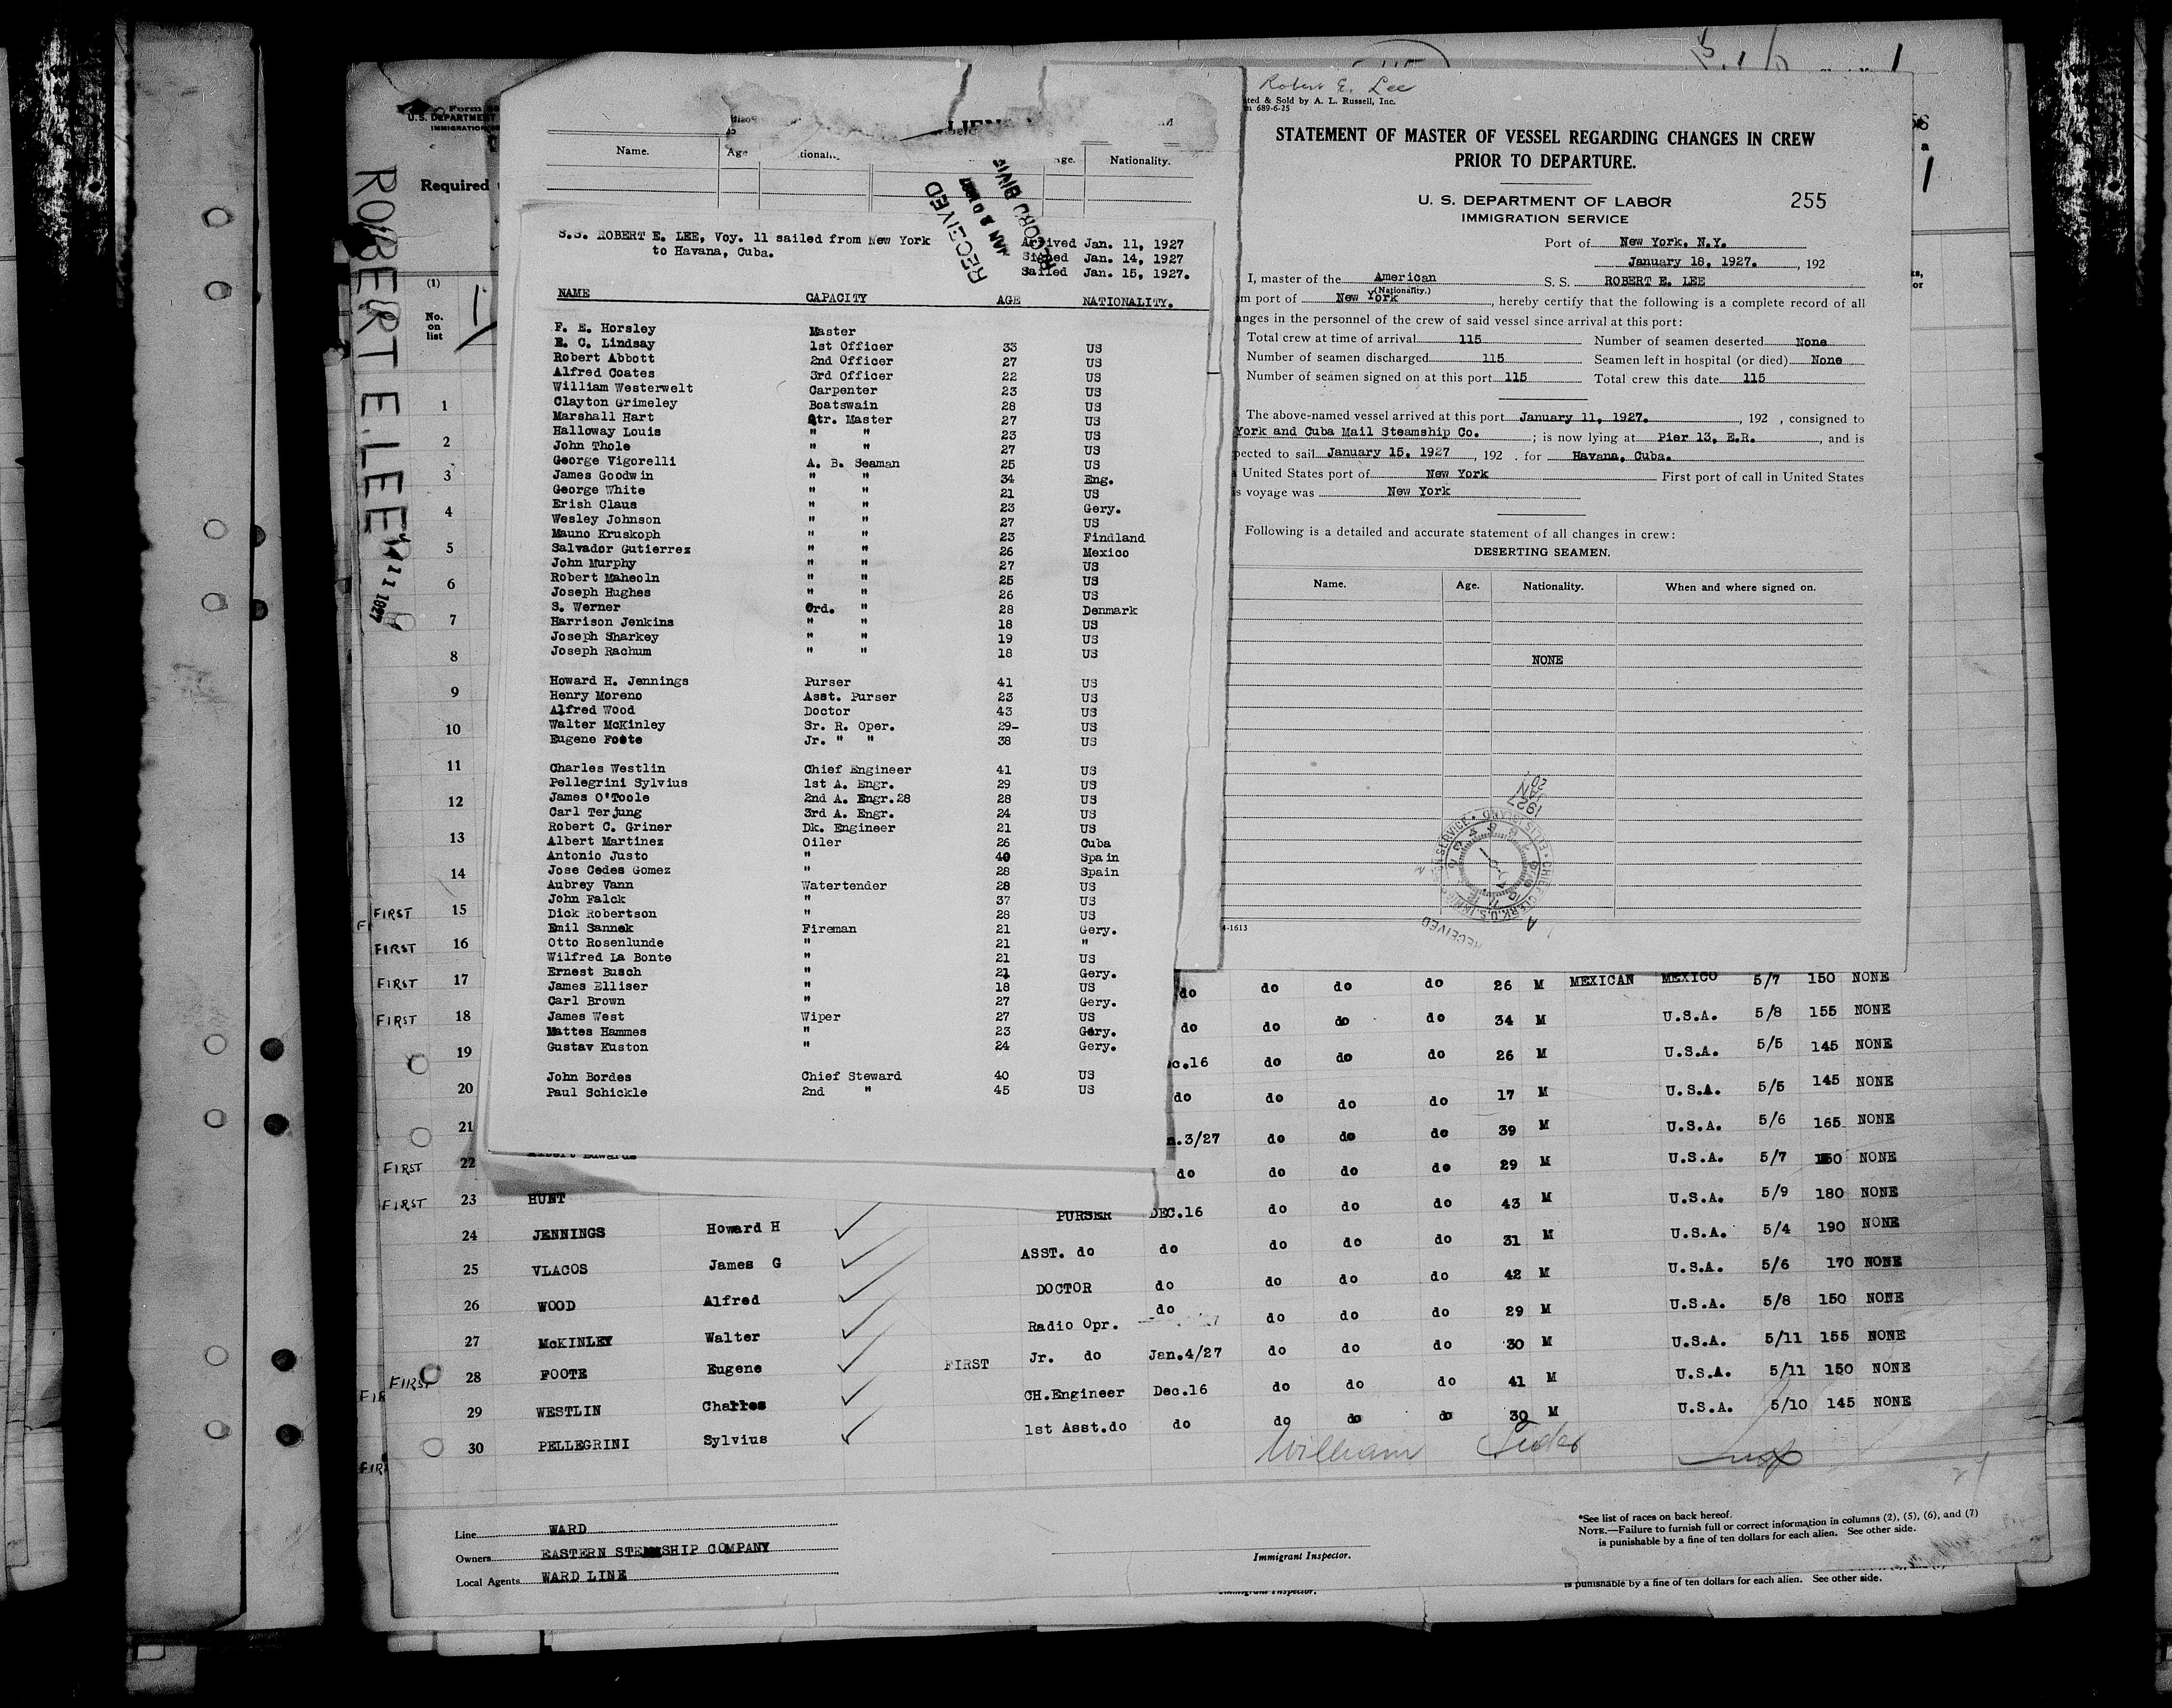 Robert E. Lee
ted & Sold by A. L. Russell, Inc.
689-6-25
STATEMENT OF MASTER OF VESSEL REGARDING CHANGES IN CREW
PRIOR TO DEPARTURE.
U. S. DEPARTMENT OF LABOR
IMMIGRATION SERVICE
255
Port of New York, N.Y.
January 18, 1927. , 192
I, master of the American S. S. ROBERT E. LEE
(Nationality.)
m port of New York , hereby certify that the following is a complete record of all
anges in the personnel of the crew of said vessel since arrival at this port:
Total crew at time of arrival 115 Number of seamen deserted None
Number of seamen discharged 115 Seamen left in hospital (or died) None
Number of seamen signed on at this port 115 Total crew this date 115
The above-named vessel arrived at this port January 11, 1927. , 192 , consigned to
York and Cuba Mail Steamship Co. ; is now lying at Pier 13, E.R. , and is
pected to sail January 15, 1927 , 192 . for Havana, Cuba.
United States port of New York First port of call in United States
s voyage was New York
Following is a detailed and accurate statement of all changes in crew:
DESERTING SEAMEN.
Name. Age. Nationality. When and where signed on.
NONE
4-1613
Form
U.S. DEPARTMENT
IMMIGRATION
Required
ROBERT E. LEE
11 1927
(1)
No.
on
list
Name. Age Nationality.
RECEIVED
S.S. ROBERT E. LEE, Voy. 11 sailed from New York
to Havana, Cuba.
Arrived Jan. 11, 1927
Signed Jan. 14, 1927
Sailed Jan. 15, 1927.
NAME CAPACITY AGE NATIONALITY.
F. E. Horsley Master
E. C. Lindsay 1st Officer 33 US
Robert Abbott 2nd Officer 27 US
Alfred Coates 3rd Officer 22 US
William Westerwelt Carpenter 23 US
Clayton Grimeley Boatswain 28 US
Marshall Hart Qtr. Master 27 US
Halloway Louis " " 23 US
John Thole " " 27 US
George Vigorelli A. B. Seaman 25 US
James Goodwin " " 34 Eng.
George White " " 21 US
Erish Claus " " 23 Gery.
Wesley Johnson " " 27 US
Mauno Kruskoph " " 23 Findland
Salvador Gutierrez " " 26 Mexico
John Murphy " " 27 US
Robert Maheoln " " 25 US
Joseph Hughes " " 26 US
S. Werner Ord. " 28 Denmark
Harrison Jenkins " " 18 US
Joseph Sharkey " " 19 US
Joseph Rachum " " 18 US
Howard H. Jennings Purser 41 US
Henry Moreno Asst. Purser 23 US
Alfred Wood Doctor 43 US
Walter McKinley Sr. R. Oper. 29- US
Eugene Foote Jr. " " 38 US
Charles Westlin Chief Engineer 41 US
Pellegrini Sylvius 1st A. Engr. 29 US
James O'Toole 2nd A. Engr.28 28 US
Carl Terjung 3rd A. Engr. 24 US
Robert C. Griner Dk. Engineer 21 US
Albert Martinez Oiler 26 Cuba
Antonio Justo " 40 Spain
Jose Cedes Gomez " 28 Spain
Aubrey Vann Watertender 28 US
John Falck " 37 US
Dick Robertson " 28 US
Emil Sannek Fireman 21 Gery.
Otto Rosenlunde " 21 "
Wilfred La Bonte " 21 US
Ernest Busch " 21 Gery.
James Elliser " 18 US
Carl Brown " 27 Gery.
James West Wiper 27 US
Mattes Hammes " 23 Gery.
Gustav Kuston " 24 Gery.
John Bordes Chief Steward 40 US
Paul Schickle 2nd " 45 US
1
2
3
4
5
6
7
8
9
10
11
12
13
14
FIRST 15
FIRST 16
FIRST 17 do do do do 26 M MEXICAN MEXICO 5/7 150 NONE
FIRST 18 do do do do 34 M U.S.A. 5/8 155 NONE
19 c.16 do do do 26 M U.S.A. 5/5 145 NONE
20 do do do do 17 M U.S.A. 5/5 145 NONE
21 n.3/27 do do do 39 M U.S.A. 5/6 165 NONE
FIRST 22 Albert Edwards do do do do 29 M U.S.A. 5/7 150 NONE
FIRST 23 HUNT PURSER DEC.16 do do do 43 M U.S.A. 5/9 180 NONE
24 JENNINGS Howard H ASST. do do do do do 31 M U.S.A. 5/4 190 NONE
25 VLACOS James G DOCTOR do do do do 42 M U.S.A. 5/6 170 NONE
26 WOOD Alfred Radio Opr. do do do do 29 M U.S.A. 5/8 150 NONE
27 McKINLEY Walter Jr. do Jan.4/27 do do do 30 M U.S.A. 5/11 155 NONE
FIRST 28 FOOTE Eugene FIRST CH.Engineer Dec.16 do do do 41 M U.S.A. 5/11 150 NONE
29 WESTLIN Charles 1st Asst.do do do do do 30 M U.S.A. 5/10 145 NONE
30 PELLEGRINI Sylvius
William
Line WARD
Owners EASTERN STEAMSHIP COMPANY
Local Agents WARD LINE
Immigrant Inspector.
*See list of races on back hereof.
NOTE.—Failure to furnish full or correct information in columns (2), (5), (6), and (7)
is punishable by a fine of ten dollars for each alien. See other side.
Immigrant Inspector.
is punishable by a fine of ten dollars for each alien. See other side.